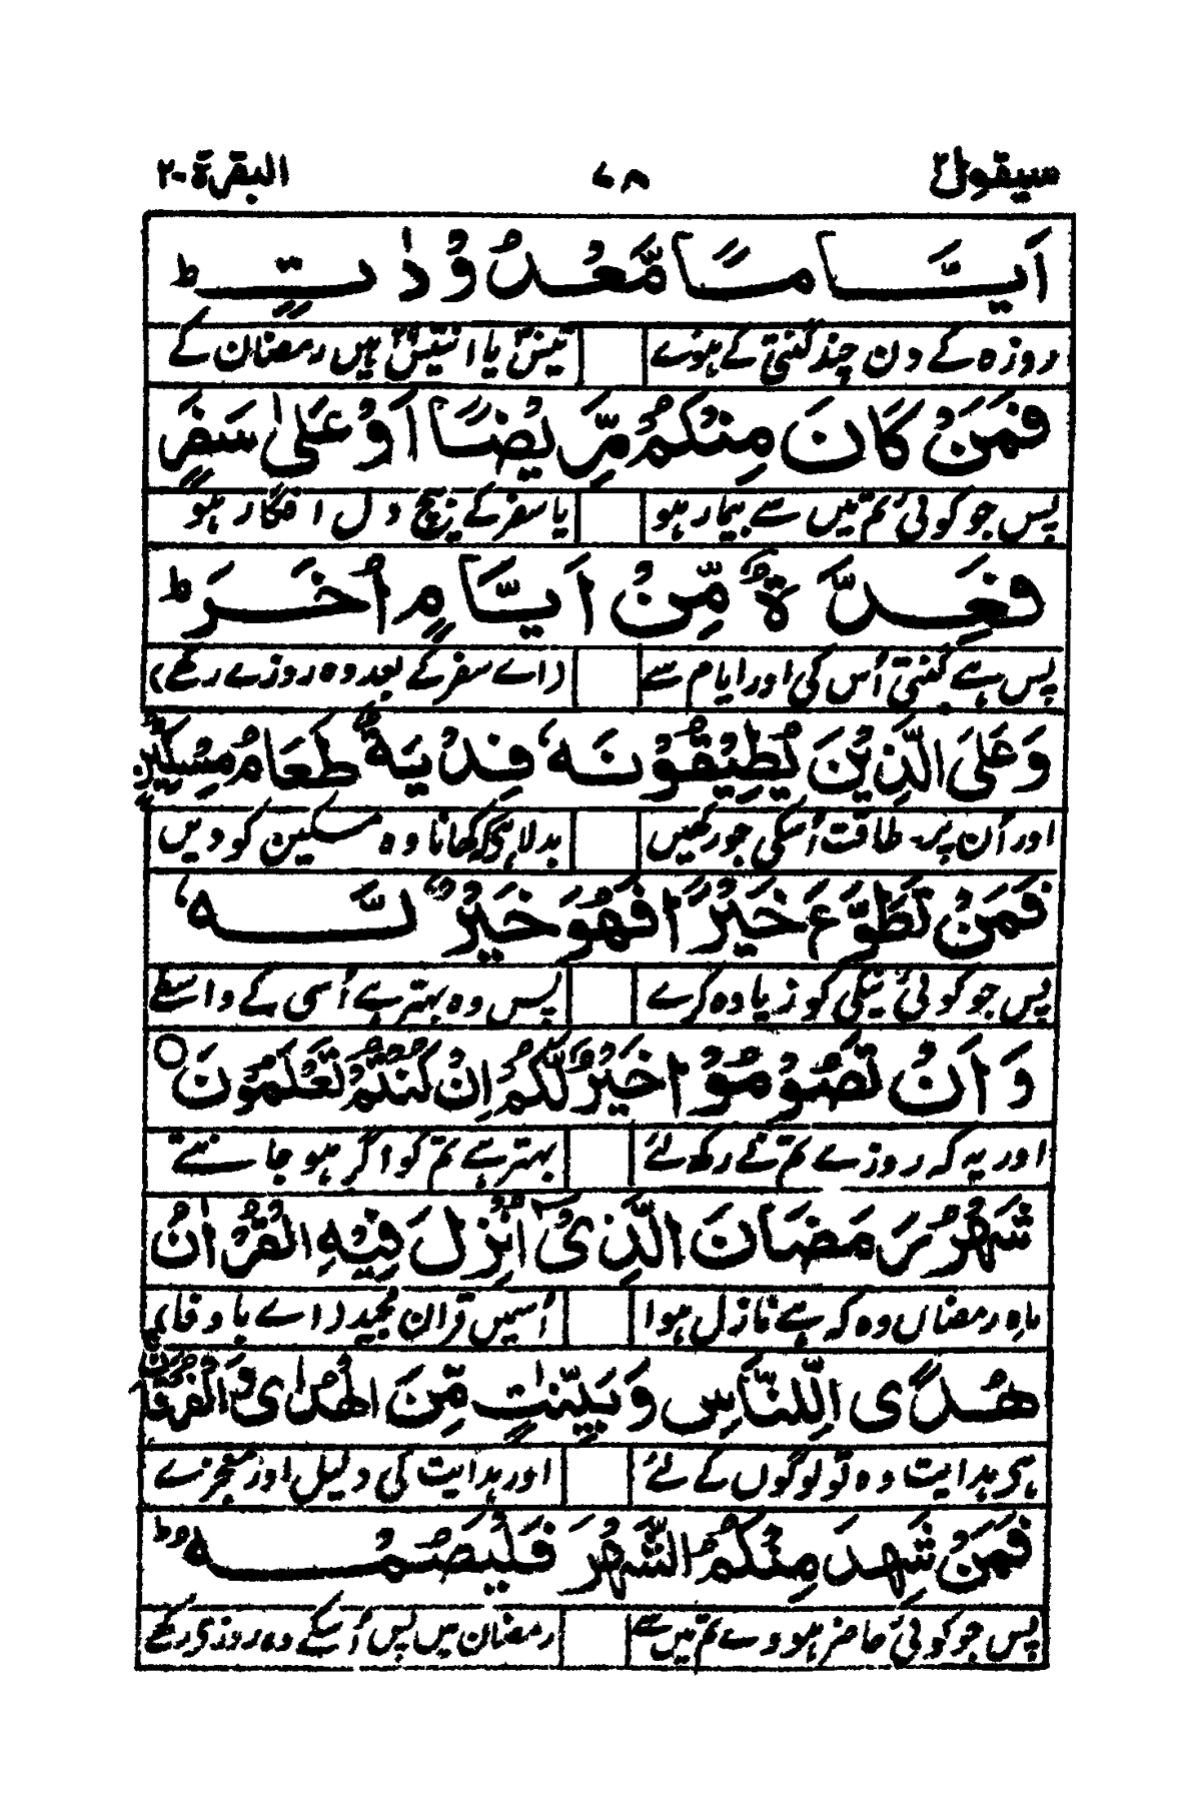 سیقول ۲ ۷۸ البقرة ۲۰
اَیَّامًا مَّعْدُوْدٰتٍ ؕ
روزہ کے دن چند گنتی کے ہوئے تیسں یا انتیسں ہیں رمضان کے
فَمَنْ کَانَ مِنْکُمْ مَّرِیْضًا اَوْ عَلٰی سَفَرٍ
پس جو کوئی تم میں سے بیمار ہو یا سفر کے بیچ دل افگار ہو
فَعِدَّةٌ مِّنْ اَیَّامٍ اُخَرَ ؕ
پس ہے گنتی اُس کی اور ایام سے (اے سفر کے بعد وہ روزے رکھے)
وَعَلَی الَّذِیْنَ یُطِیْقُوْنَهٗ فِدْیَةٌ طَعَامُ مِسْکِیْنٍ
اور اُن پر۔ طاقت اُسکی جو رکھیں بدلا ہی کہ کھانا وہ مسکین کو دیں
فَمَنْ تَطَوَّعَ خَیْرًا فَهُوَ خَیْرٌ لَّهٗ
پس جو کوئی نیکی کو زیادہ کرے پس وہ بہتر ہے اُسی کے واسطے
وَاَنْ تَصُوْمُوْا خَیْرٌ لَّکُمْ اِنْ کُنْتُمْ تَعْلَمُوْنَ ○
اور یہ کہ روزے تم نے رکھ لئے بہتر ہے تم کو اگر ہو جانتے
شَهْرُ رَمَضَانَ الَّذِیْۤ اُنْزِلَ فِیْهِ الْقُرْاٰنُ
ماہِ رمضاں وہ کہ ہے نازل ہوا اُسمیں قرآن مجید (اے باوفا)
هُدًی لِّلنَّاسِ وَبَیِّنٰتٍ مِّنَ الْهُدٰی وَالْفُرْقَانِ
ہی ہدایت وہ تو لوگوں کے لئے اور ہدایت کی دلیل اور معجزے
فَمَنْ شَهِدَ مِنْکُمُ الشَّهْرَ فَلْیَصُمْهُ ؕ
پس جو کوئی حاضر ہووے تم میں سے رمضان میں پس اُسکے وہ روزے رکھے